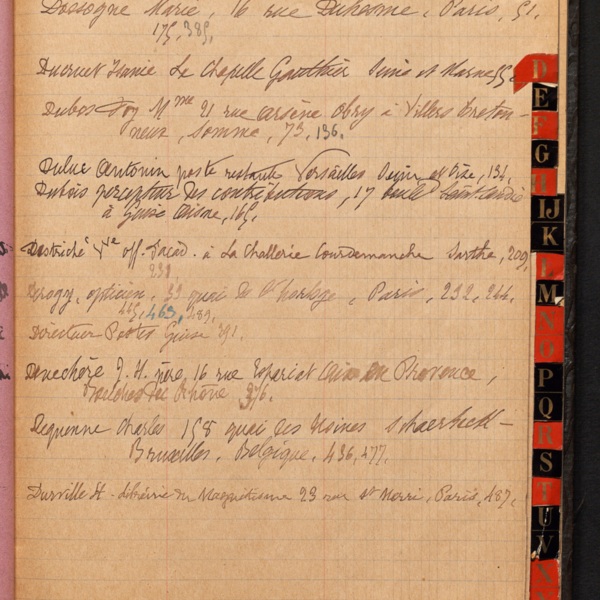 Dossogne Marie, 16 rue Duhesme, Paris, 51,
175, 385,
Ducruet Fannie La Chapelle Gauthier Seine et Marne 55
Dubos Foy Mme 21 rue arsène Obry à Villers Breton-
neux, Somme, 73, 136,
Duluc Antonin poste restante Versailles Seine et Oise, 134,
Dubois percepteur des contributions, 17 boulD Saint
à Guise Aisne, 165,
Destriché Vve off. d'acad. à La Challerie Courdemanche Sarthe, 209,
231
Drogy, opticien, 33 quai de l'horloge, Paris, 232, 244,
445, 463, 489,
Directeur Postes Guise 391.
Duechère J. H. père, 16 rue Espariat Aix en Provence,
Bouches du Rhône 376.
Dequenne Charles 158 quai des Usines Schaerbeek-
Bruxelles, Belgique, 436, 477,
Durville H. librairie du Magnétisme 23 rue St Merri, Paris, 487,
D
E
F
G
H
IJ
K
L
M
N
O
P
Q
R
S
T
U
V